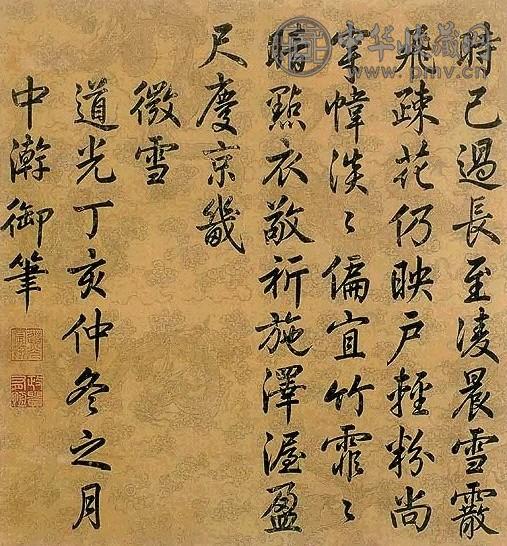 時已過長至凌晨雪霰
飛疎花仍映戶輕粉尚
穿幃淡〻偏宜竹霏〻
暗點衣敬祈施澤渥盈
尺慶京畿
微雪
道光丁亥仲冬之月
中澣御筆
中华收藏网
www.pmv.cn